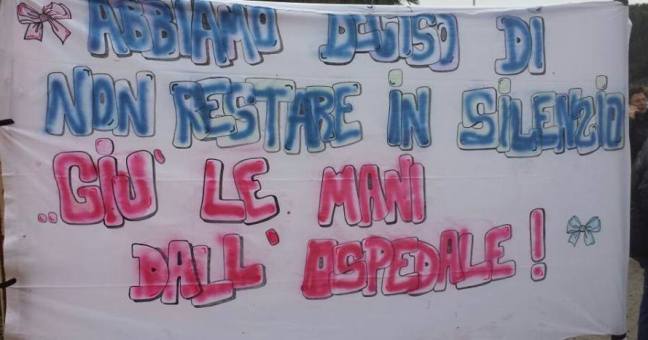 ABBIAMO DECISO DI
NON RESTARE IN SILENZIO
..GIU' LE MANI
DALL' OSPEDALE!